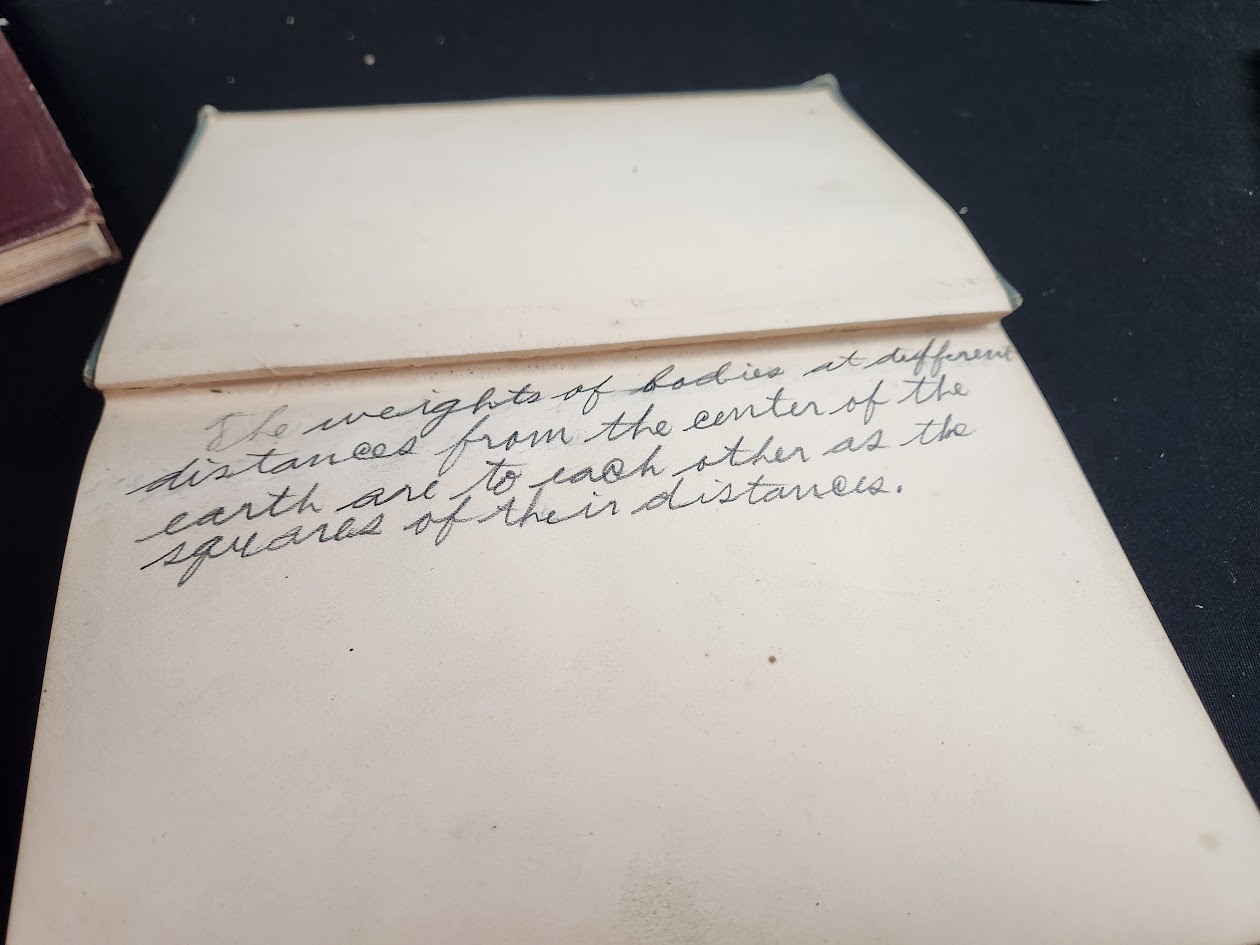 The weights of bodies at different
distances from the center of the
earth are to each other as the
squares of their distances.